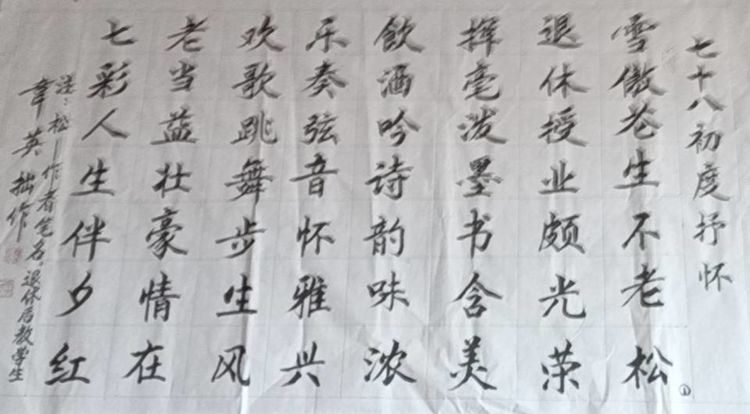 七十八初度抒怀
雪傲苍生不老松
①
退休授业颇光荣
挥毫泼墨书含美
飲酒吟诗韵味浓
乐奏弦音怀雅兴
欢歌跳舞步生风
老当益壮豪情在
七彩人生伴夕红
注:松—作者笔名。退休后教学生
韦英拙作